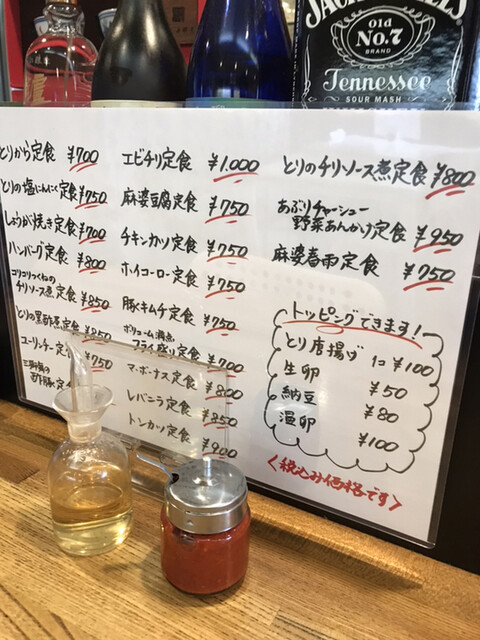 JACK DANIEL'S
Old
No.7
BRAND
Tennessee
SOUR MASH
とりから定食 ¥700
とりの塩にんにく定食 ¥750
しょうが焼き定食 ¥700
ハンバーグ定食 ¥800
コリコリつくねの
チリソース煮定食 ¥850
とりの黒酢煮定食 ¥850
ユーリンチー定食 ¥750
酢豚定食
エビチリ定食 ¥1,000
麻婆豆腐定食 ¥750
チキンカツ定食 ¥750
ホイコーロー定食 ¥750
豚キムチ定食 ¥750
ボリューム満点
フライ盛り定食 ¥700
マーボーナス定食 ¥800
レバニラ定食 ¥850
トンカツ定食 ¥900
とりのチリソース煮定食 ¥800
あぶりチャーシュー
野菜あんかけ定食 ¥950
麻婆春雨定食 ¥750
トッピングできます!
とり唐揚げ 1コ ¥100
生卵 ¥50
納豆 ¥80
温卵 ¥100
<税込み価格です>